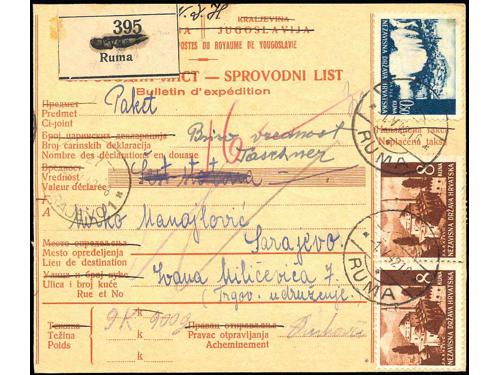 N. D. H.
КРАЉЕВИНА
395
JUGOSLAVIJA
Ruma
POSTES DU ROYAUME DE YOUGOSLAVIE
— SPROVODNI LIST
Bulletin d'expédition
Предмет
Predmet
Ci-point
Paket
Број царинских декларација
Broj carinskih deklaracija
Nombre des déclarations en douane
16
Bez vrednost
Taschner
Naplaćena taksa
Вредност
Vrednost
Valeur déclarée
A
Mirko Manajlović
Место опредељења
Mesto opredeljenja
Lieu de destination
Sarajevo
Улица и број куће
Ulica i broj kuće
Rue et No
Ivana Milićevića 7.
Trgov. udruženje.
Тежина
Težina
Poids
k
k
Правац отправљања
Pravac otpravljanja
Acheminement
NEZAVISNA DRŽAVA HRVATSKA
KUNA
RUMA
8
KUNA
NEZAVISNA DRŽAVA HRVATSKA
RUMA
8
KUNA
NEZAVISNA DRŽAVA HRVATSKA